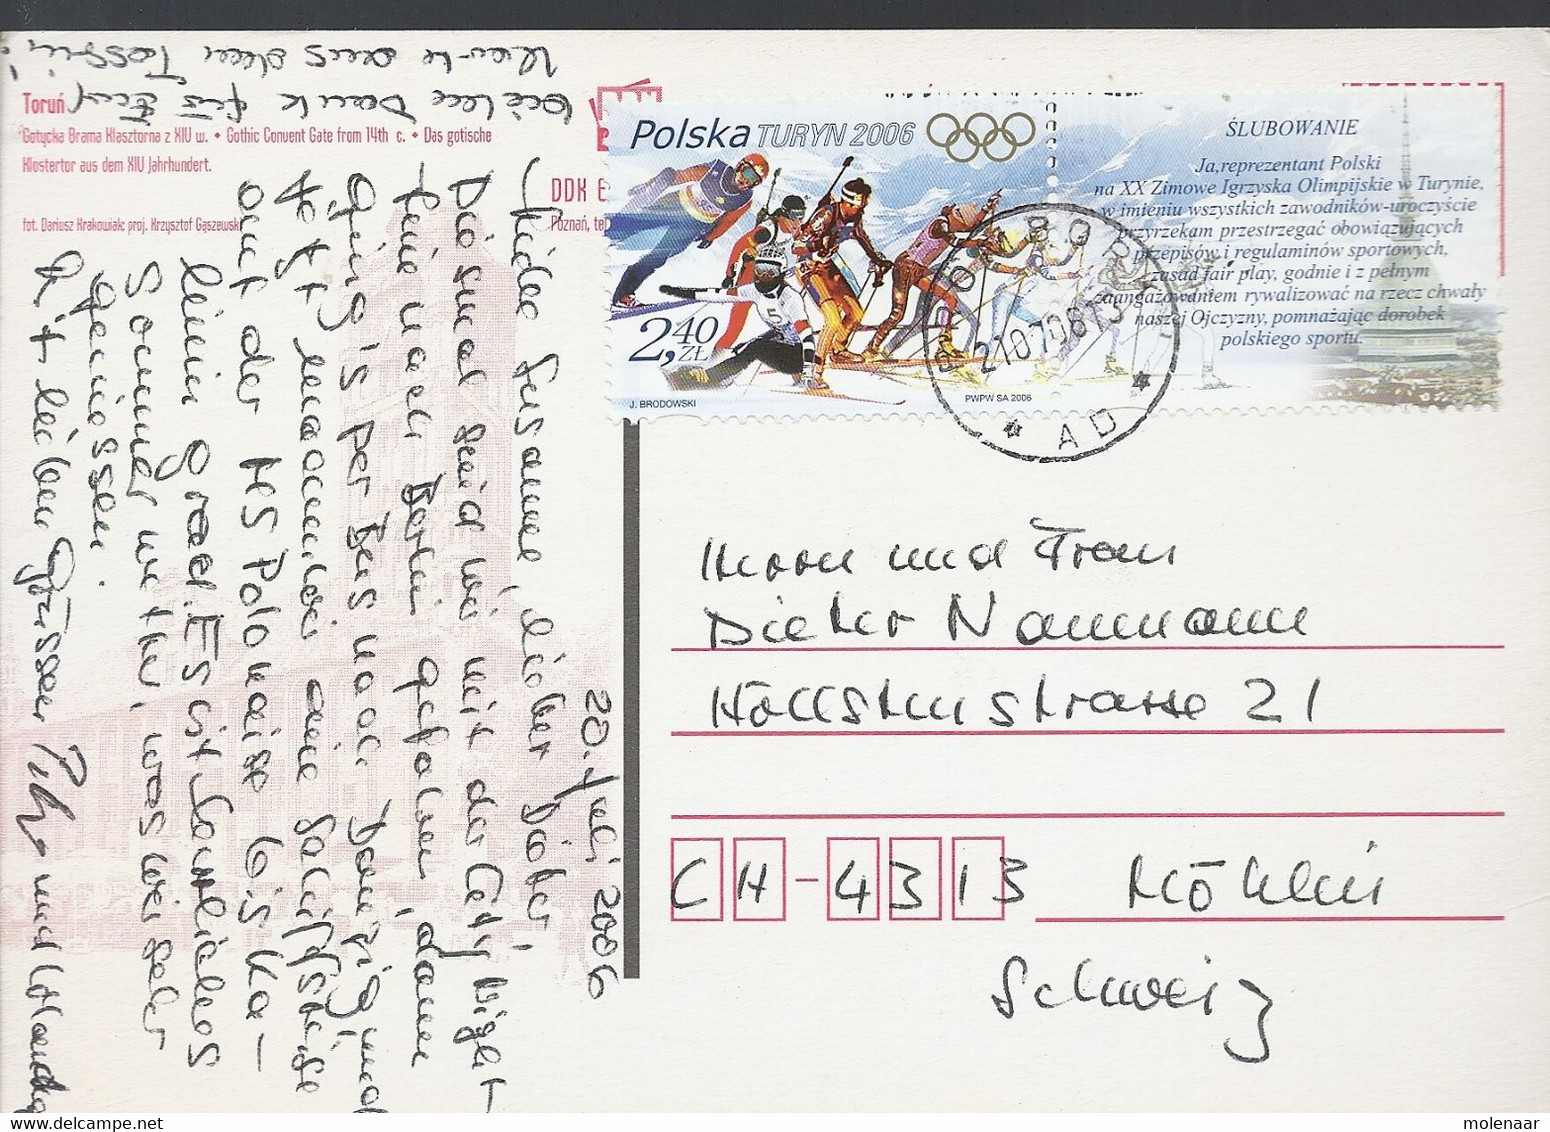 Toruń
Gotycka Brama Klasztorna z XIV w. • Gothic Convent Gate from 14th c. • Das gotische
Klostertor aus dem XIV Jahrhundert.
fot. Dariusz Krakowiak; proj. Krzysztof Gąszewski
DDK E
Poznań, tel
Polska TURYN 2006
2,40
ZŁ
J. BRODOWSKI
PWPW SA 2006
5
ŚLUBOWANIE
Ja, reprezentant Polski
na XX Zimowe Igrzyska Olimpijskie w Turynie,
w imieniu wszystkich zawodników-uroczyście
przyrzekam przestrzegać obowiązujących
przepisów i regulaminów sportowych,
zasad fair play, godnie i z pełnym
zaangażowaniem rywalizować na rzecz chwały
naszej Ojczyzny, pomnażając dorobek
polskiego sportu.
AD
20. Juli 2006
lieber Dieter,
Diesmal sind wir mit der City Night
Line nach Berlin gefahren, dann
ging's per Bus nach Danzig und
jetzt sind wir eine
auf der MS Polonaise bis Ka-
liningrad. Es ist herrliches
Sommerwetter, was wir sehr
geniessen.
Mit lieben Grüssen
und
Vielen Dank für Eure
Karte aus dem Tessin!
Herrn und Frau
Dieter Naumann
strasse 21
CH-4313 Möhlin
Schweiz
molenaar